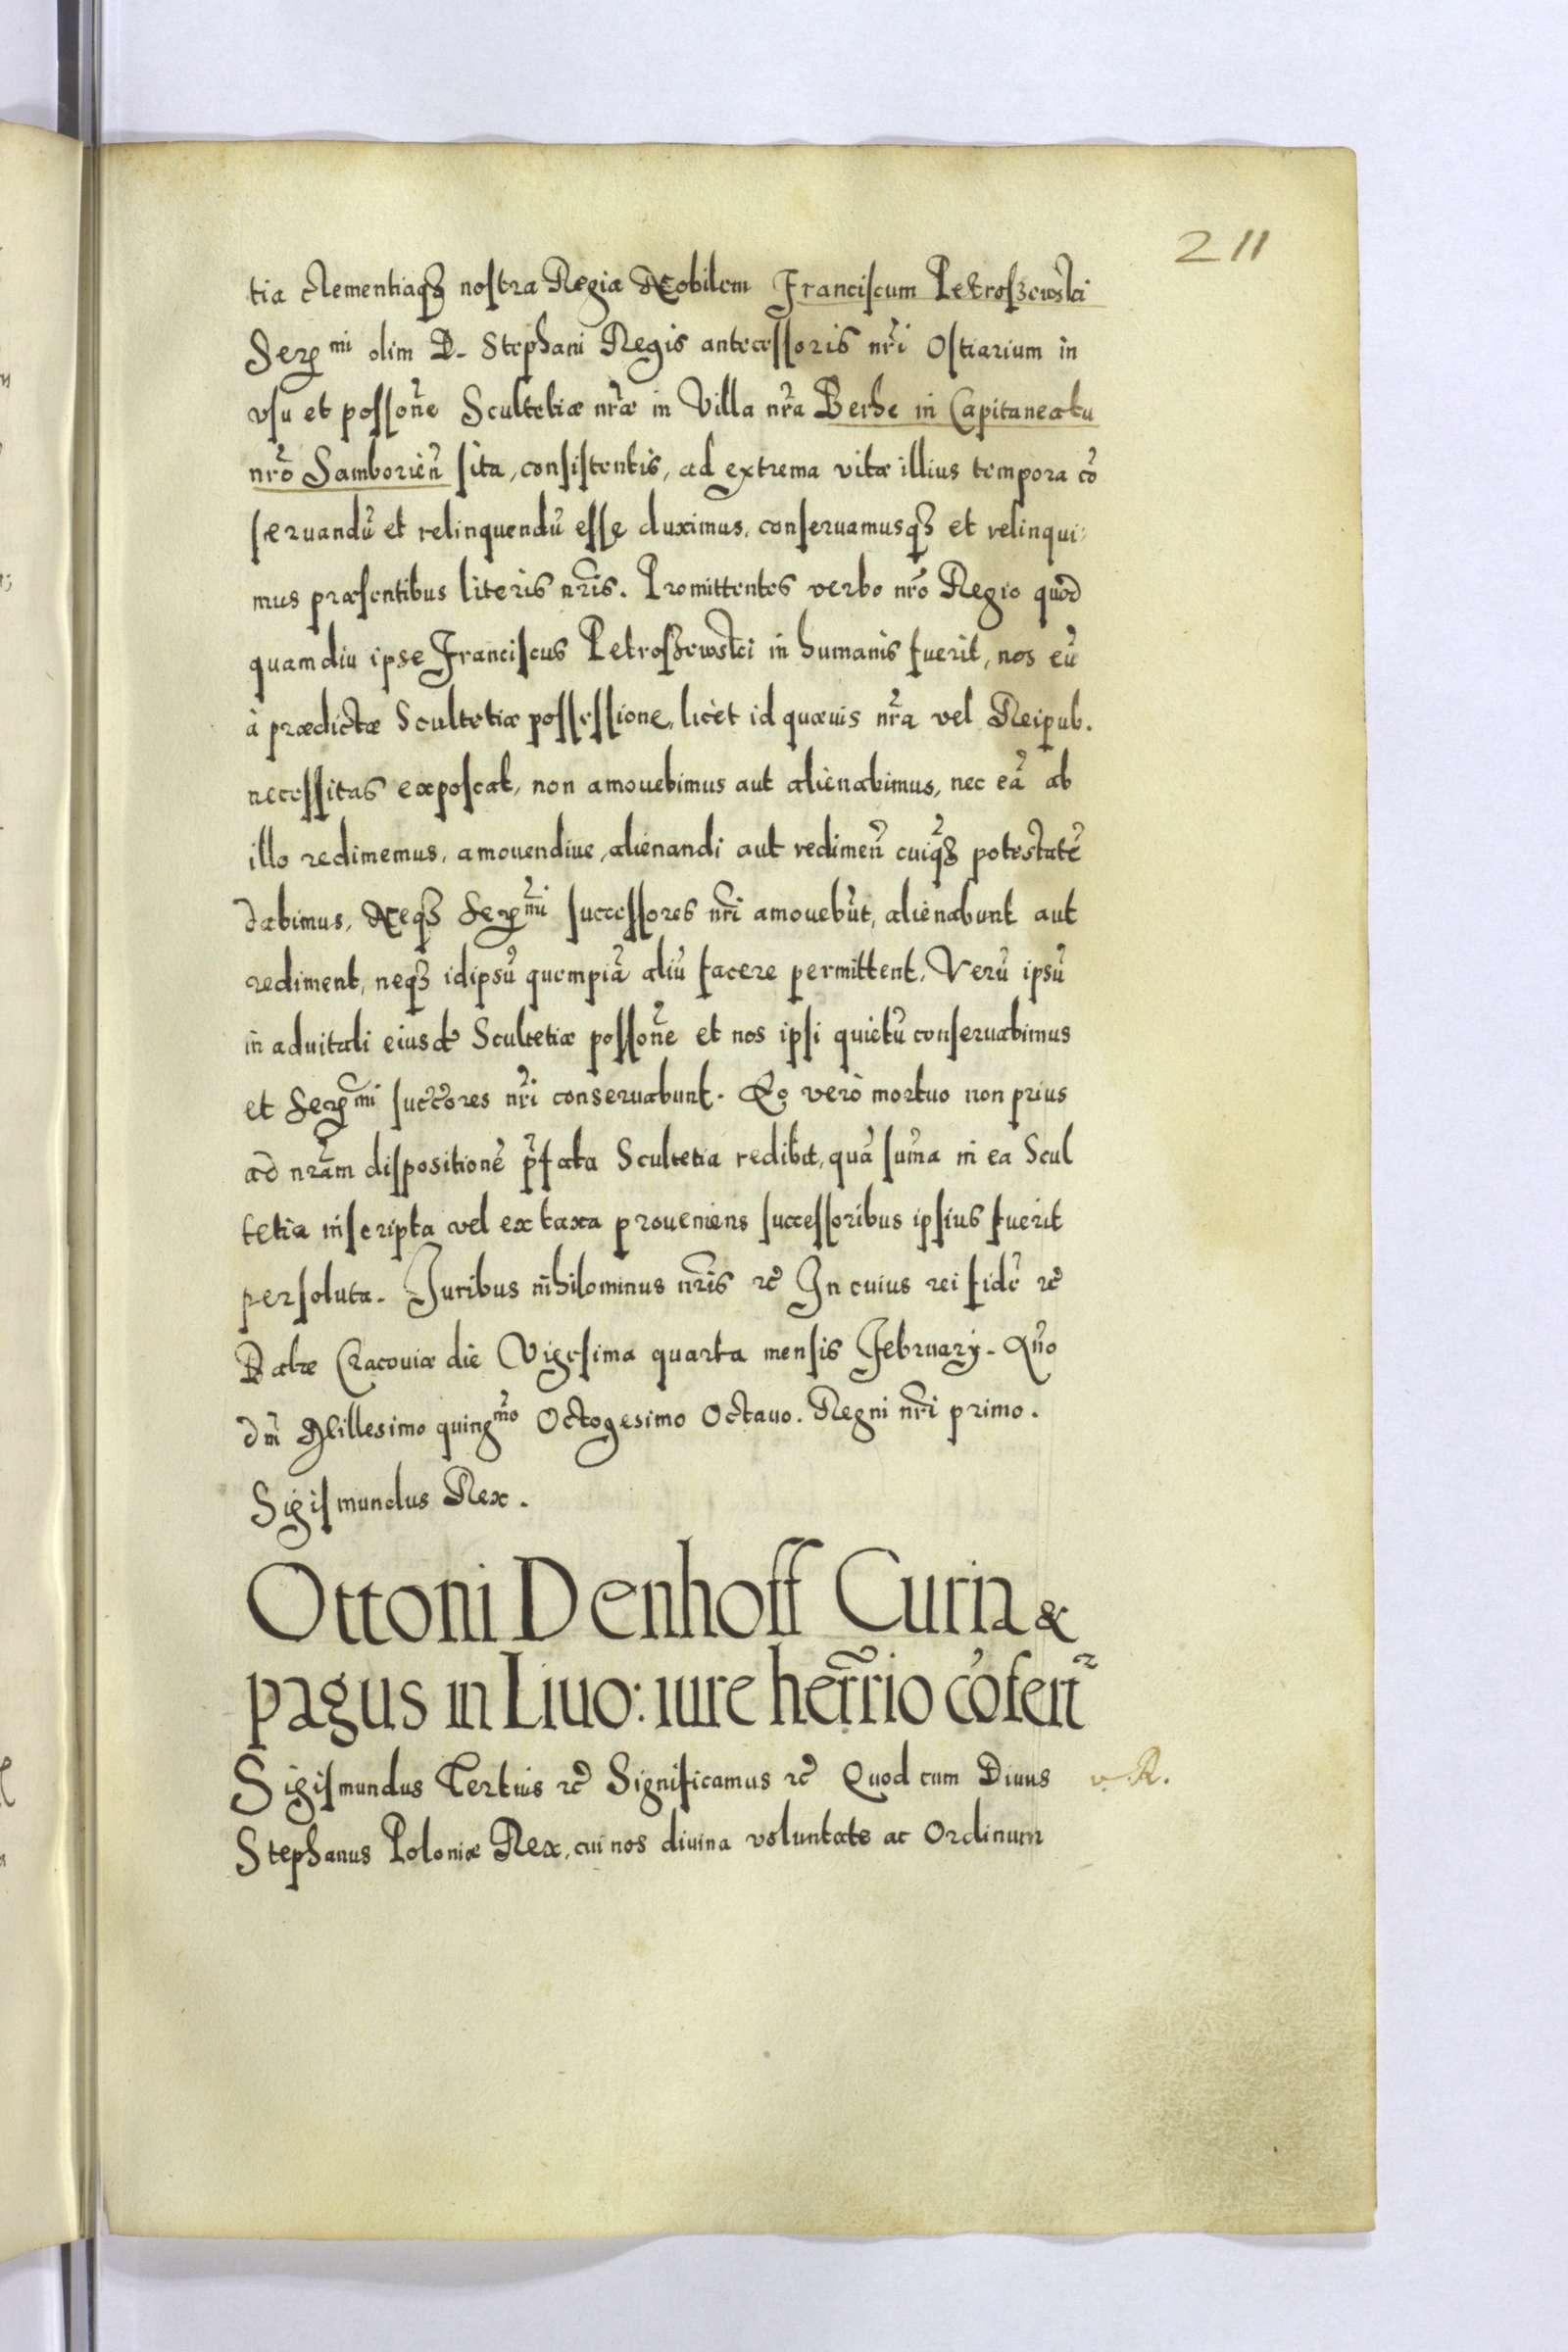 211
tia clementiaq3 nostra Regia Nobilem Franciscum Petroszewski
Ser mi olim D. Stephani Regis antecessoris nri Ostiarium in
vsu et possone Scultetiæ nræ in Villa nra Berhe in Capitaneatu
nro Samborien sita, consistentis, ad extrema vitæ illius tempora cō
seruandū et relinquendū esse duximus, conseruamusq3 et relinqui:
mus præsentibus literis nris. Promittentes verbo nro Regio quod
quamdiu ipse Franciscus Petroszewski in humanis fuerit, nos eū
à prædictæ Scultetiæ possessione, licèt id quæuis nra vel Reipub.
necessitas exposcat, non amouebimus aut alienabimus, nec eā ab
illo redimemus, amouendiue, alienandi aut redimen cuiq3 potestatē
dabimus, Neq3 Ser mi successores nri amouebūt, alienabunt aut
rediment, neq3 idipsū quempiā aliū facere permittent, Verū ipsū
in aduitali eiusdē Scultetiæ possone et nos ipsi quietū conseruabimus
et Ser mi succores nri conseruabunt. Eo verò mortuo non prius
ad nram dispositionē pfata Scultetia redibit, quā suma in ea Scul
tetia inscripta vel ex taxa proueniens successoribus ipsius fuerit
persoluta. Iuribus nihilominus nris rc̃ In cuius rei fidē rc̃
Datæ Cracouiæ die Vigesima quarta mensis February. Año
dni Millesimo quing mo Octogesimo Octauo. Regni nri primo.
Sigismundus Rex.
Ottoni Denhoff Curia &
pagus in Liuo: iure herrio cōfert
Sigismundus Tertius rc̃ Significamus rc̃ Quod cum Diuus
v. R.
Stephanus Poloniæ Rex, cui nos diuina voluntate ac Ordinum